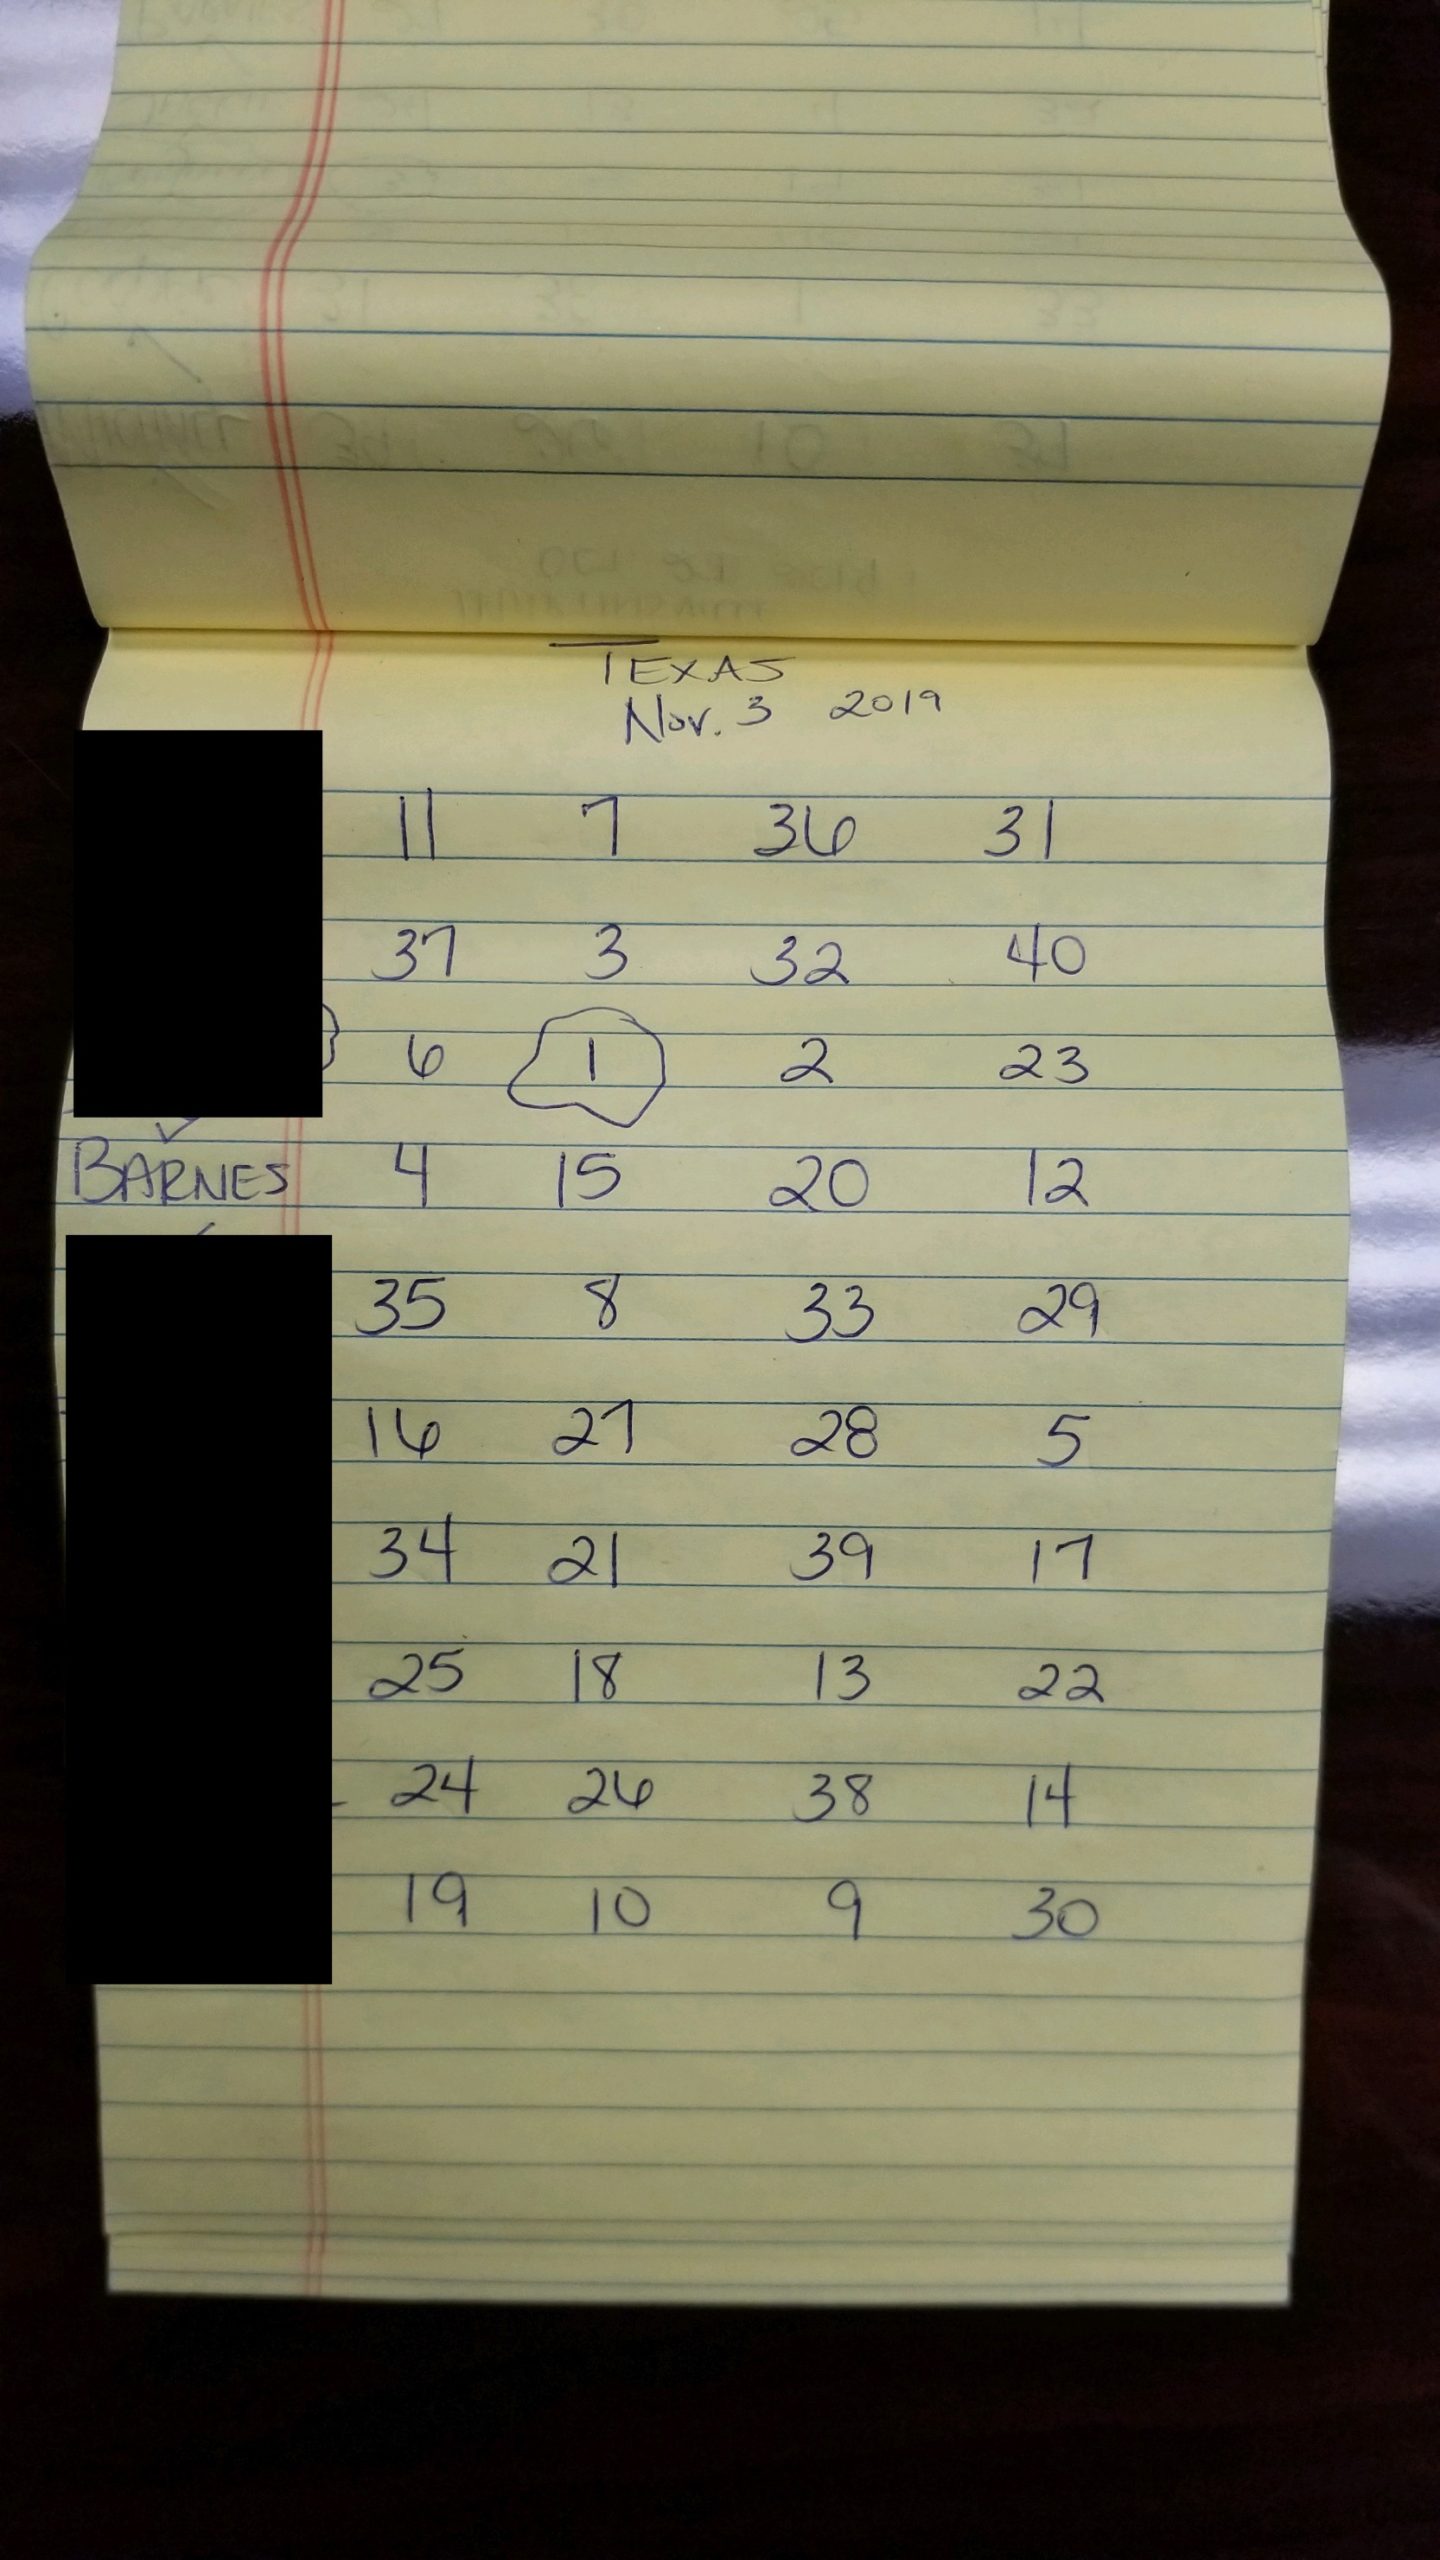 TEXAS
Nov. 3 2019
11 7 36 31
37 3 32 40
6 1 2 23
BARNES 4 15 20 12
35 8 33 29
16 27 28 5
34 21 39 17
25 18 13 22
24 26 38 14
19 10 9 30